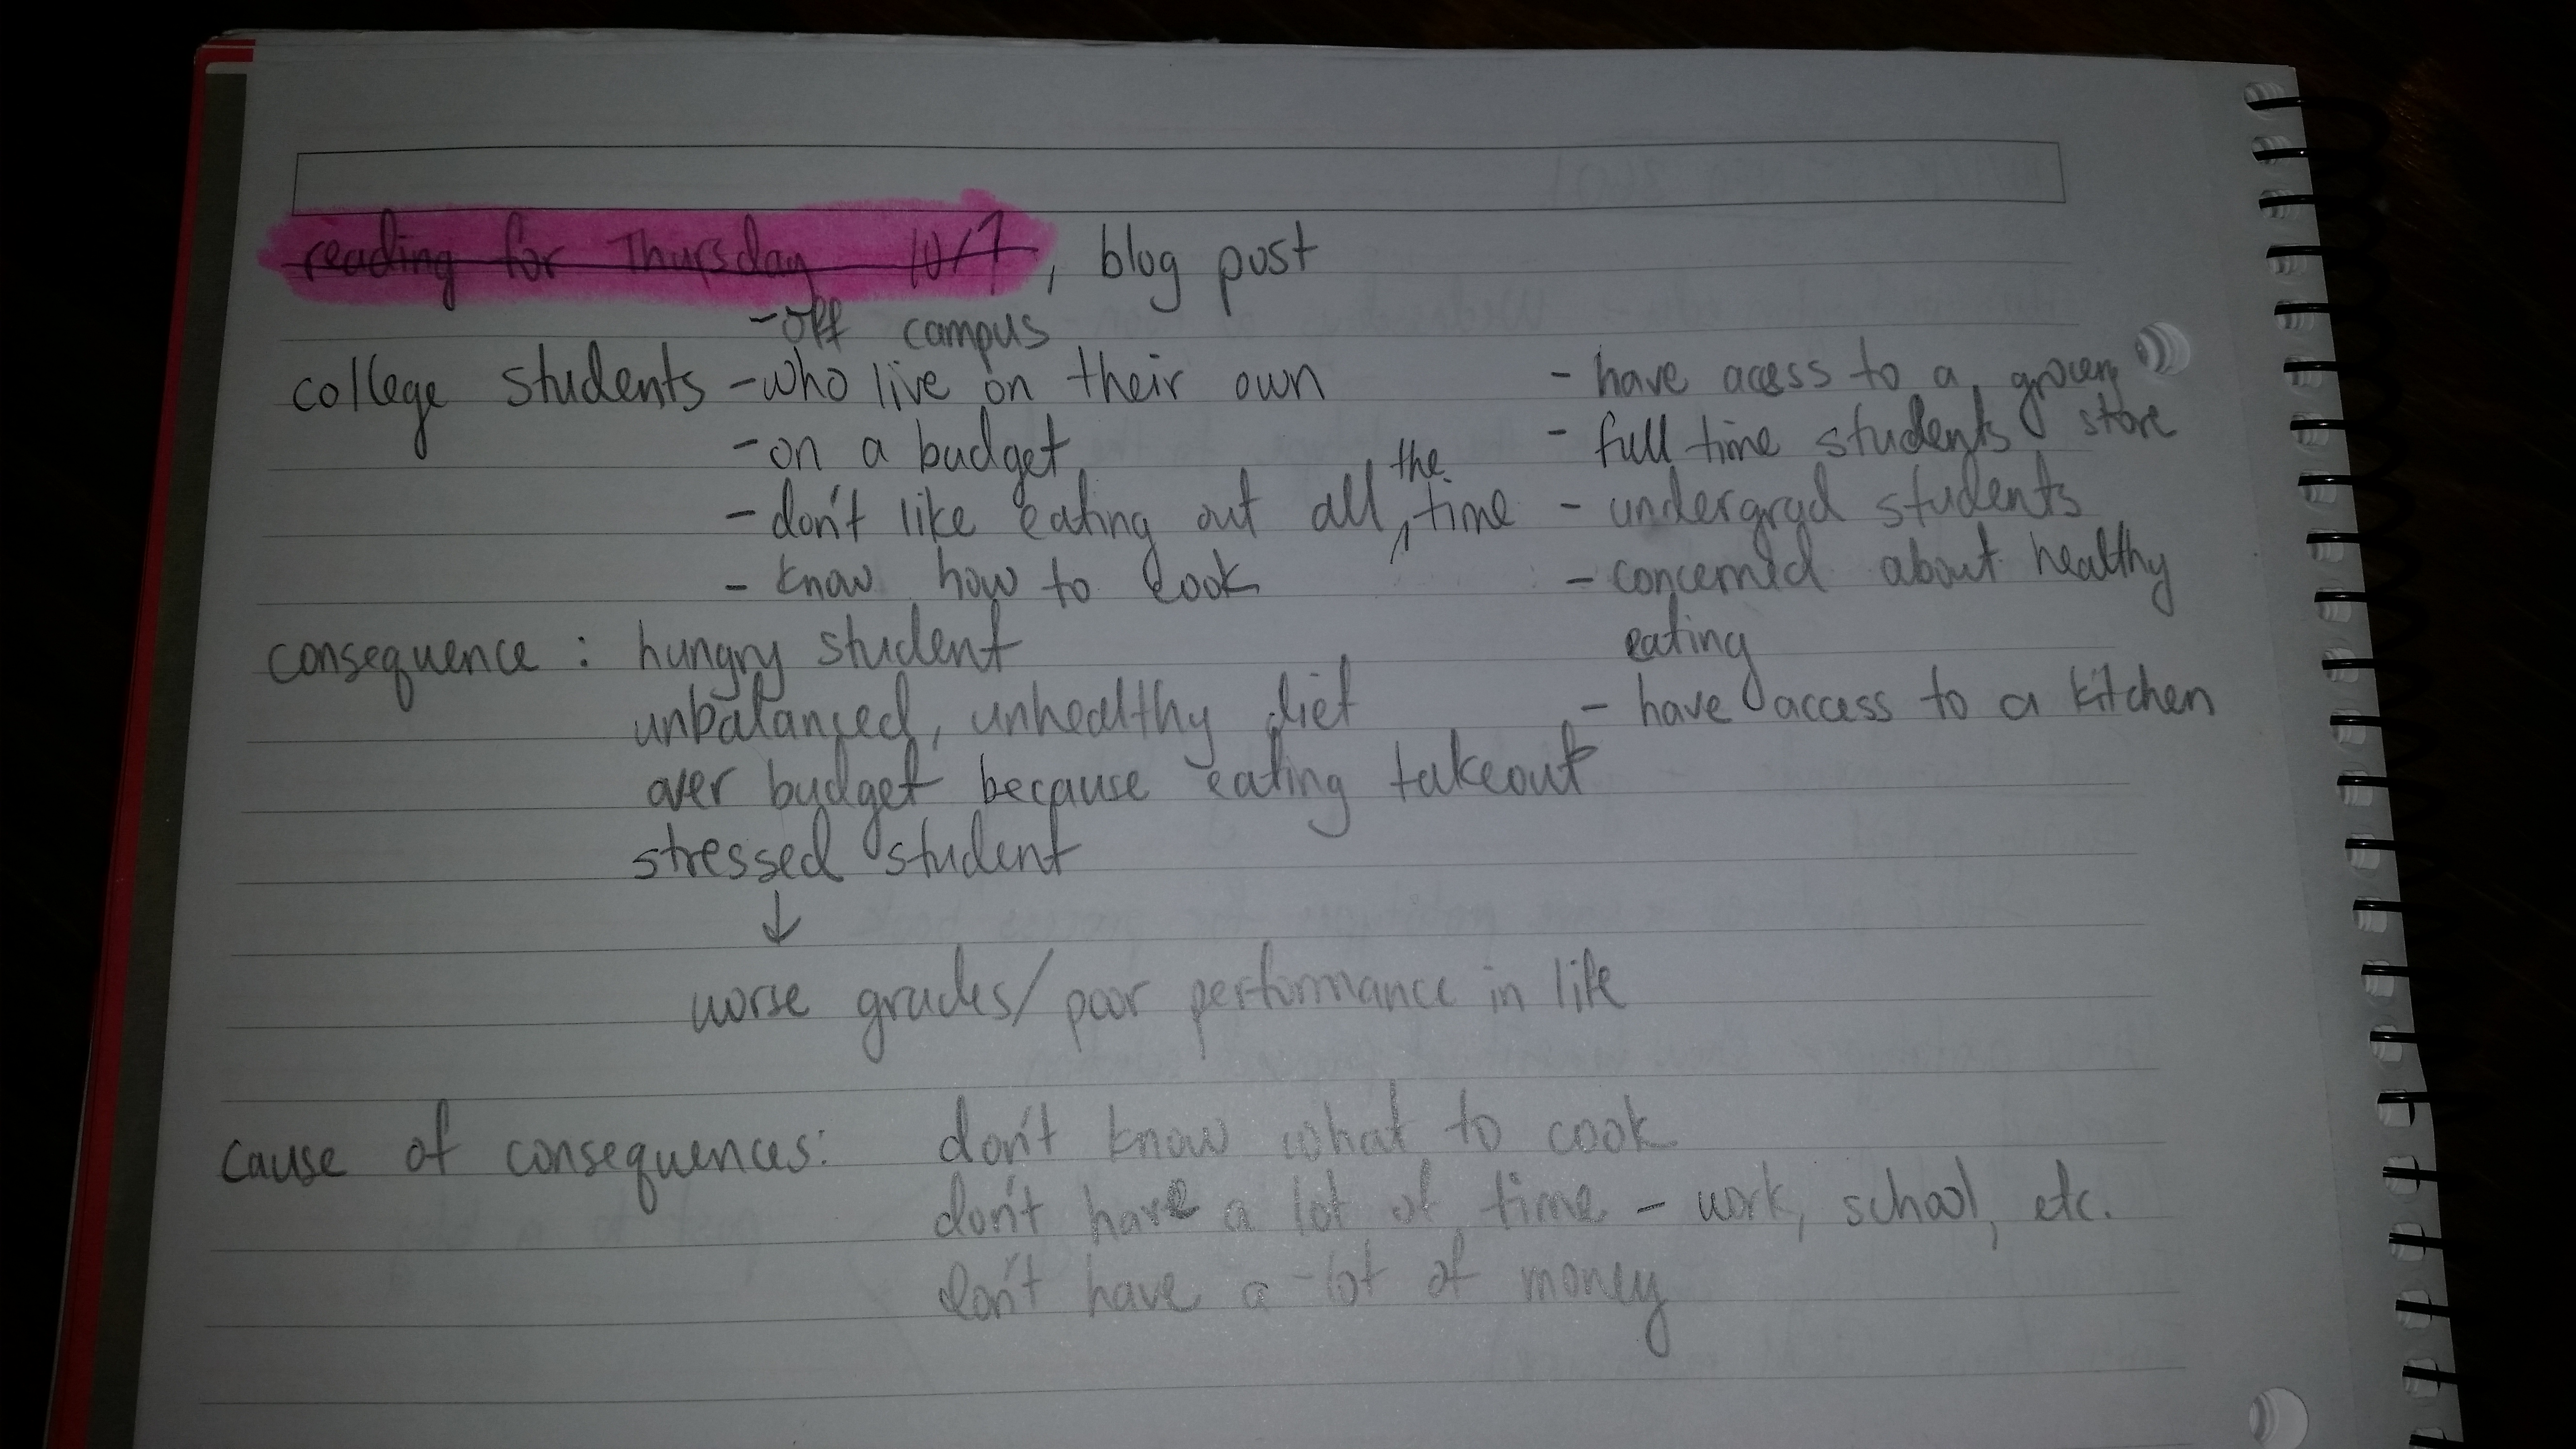 reading for Thursday 10/7, blog post
- off campus
college students - who live on their own
- on a budget
- don't like eating out all the time
- know how to cook
- have acess to a grocery store
- full time students
- undergrad students
- concerned about healthy
eating
- have access to a kitchen
consequence : hungry student
unbalanced, unhealthy diet
over budget because eating takeout
stressed student
↓
worse grades/poor performance in life
cause of consequences: don't know what to cook
don't have a lot of time - work, school, etc.
don't have a lot of money